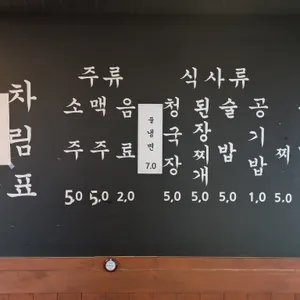 차림표
주류
소주 5.0
맥주 5.0
음료 2.0
물냉면 7.0
식사류
청국장 5.0
된장찌개 5.0
술밥 5.0
공기밥 1.0
찌 5.0